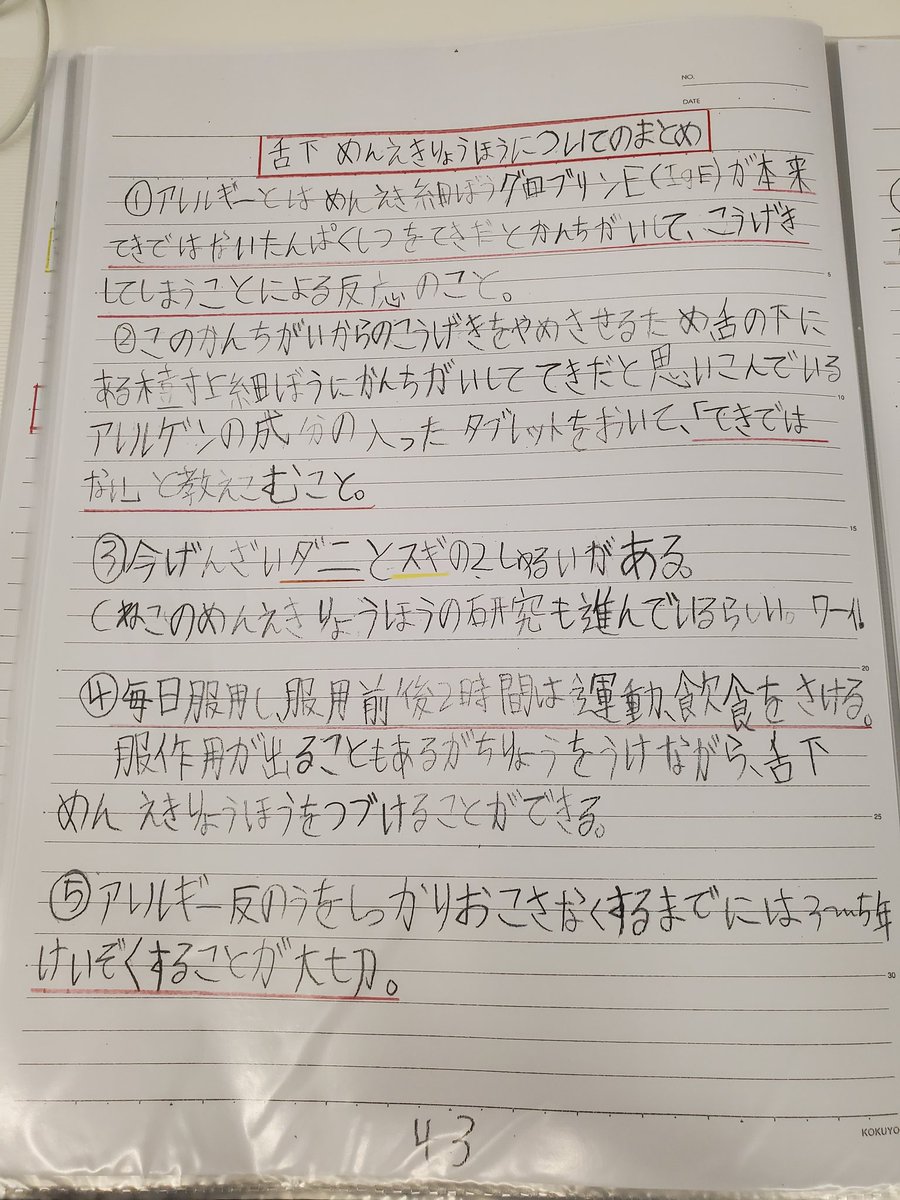 NO.
DATE
舌下 めんえきりょうほうについてのまとめ
①アレルギーとは めんえき細ぼうグロブリンE(IgE)が本来
てきではないたんぱくしつをてきだとかんちがいして、こうげき
してしまうことによる反応のこと。
5
②このかんちがいからのこうげきをやめさせるため舌の下に
ある樹寸上細ぼうにかんちがいしててきだと思いこんでいる
10
アレルゲンの成分の入ったタブレットをおいて、「てきでは
ない」と教えこむこと。
15
③今げんざいダニとスギの2しゅるいがある。
(ねこのめんえきりょうほうの研究も進んでいるらしい。ワーイ!
20
④毎日服用し、服用前後2時間は運動、飲食をさける。
服作用が出ることもあるがちりょうをうけながら、舌下
めんえきりょうほうをつづけることができる。
25
⑤アレルギー反のうをしっかりおこさなくするまでには3〜5年
けいぞくすることが大切。
30
KOKUYO
43